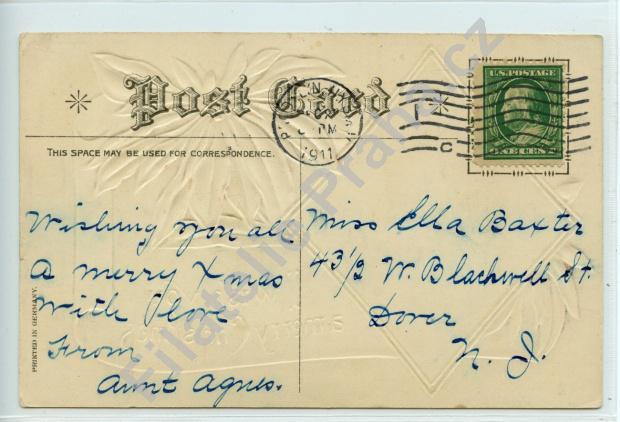 Post Card
U.S. POSTAGE
PM
1911
ONE CENT
THIS SPACE MAY BE USED FOR CORRESPONDENCE.
Wishing you all
A merry Xmas
With love
From
Aunt Agnes.
Miss Ella Baxter
43½ W. Blackwell St.
Dover
N. J.
PRINTED IN GERMANY.
Filatelie Praha.cz